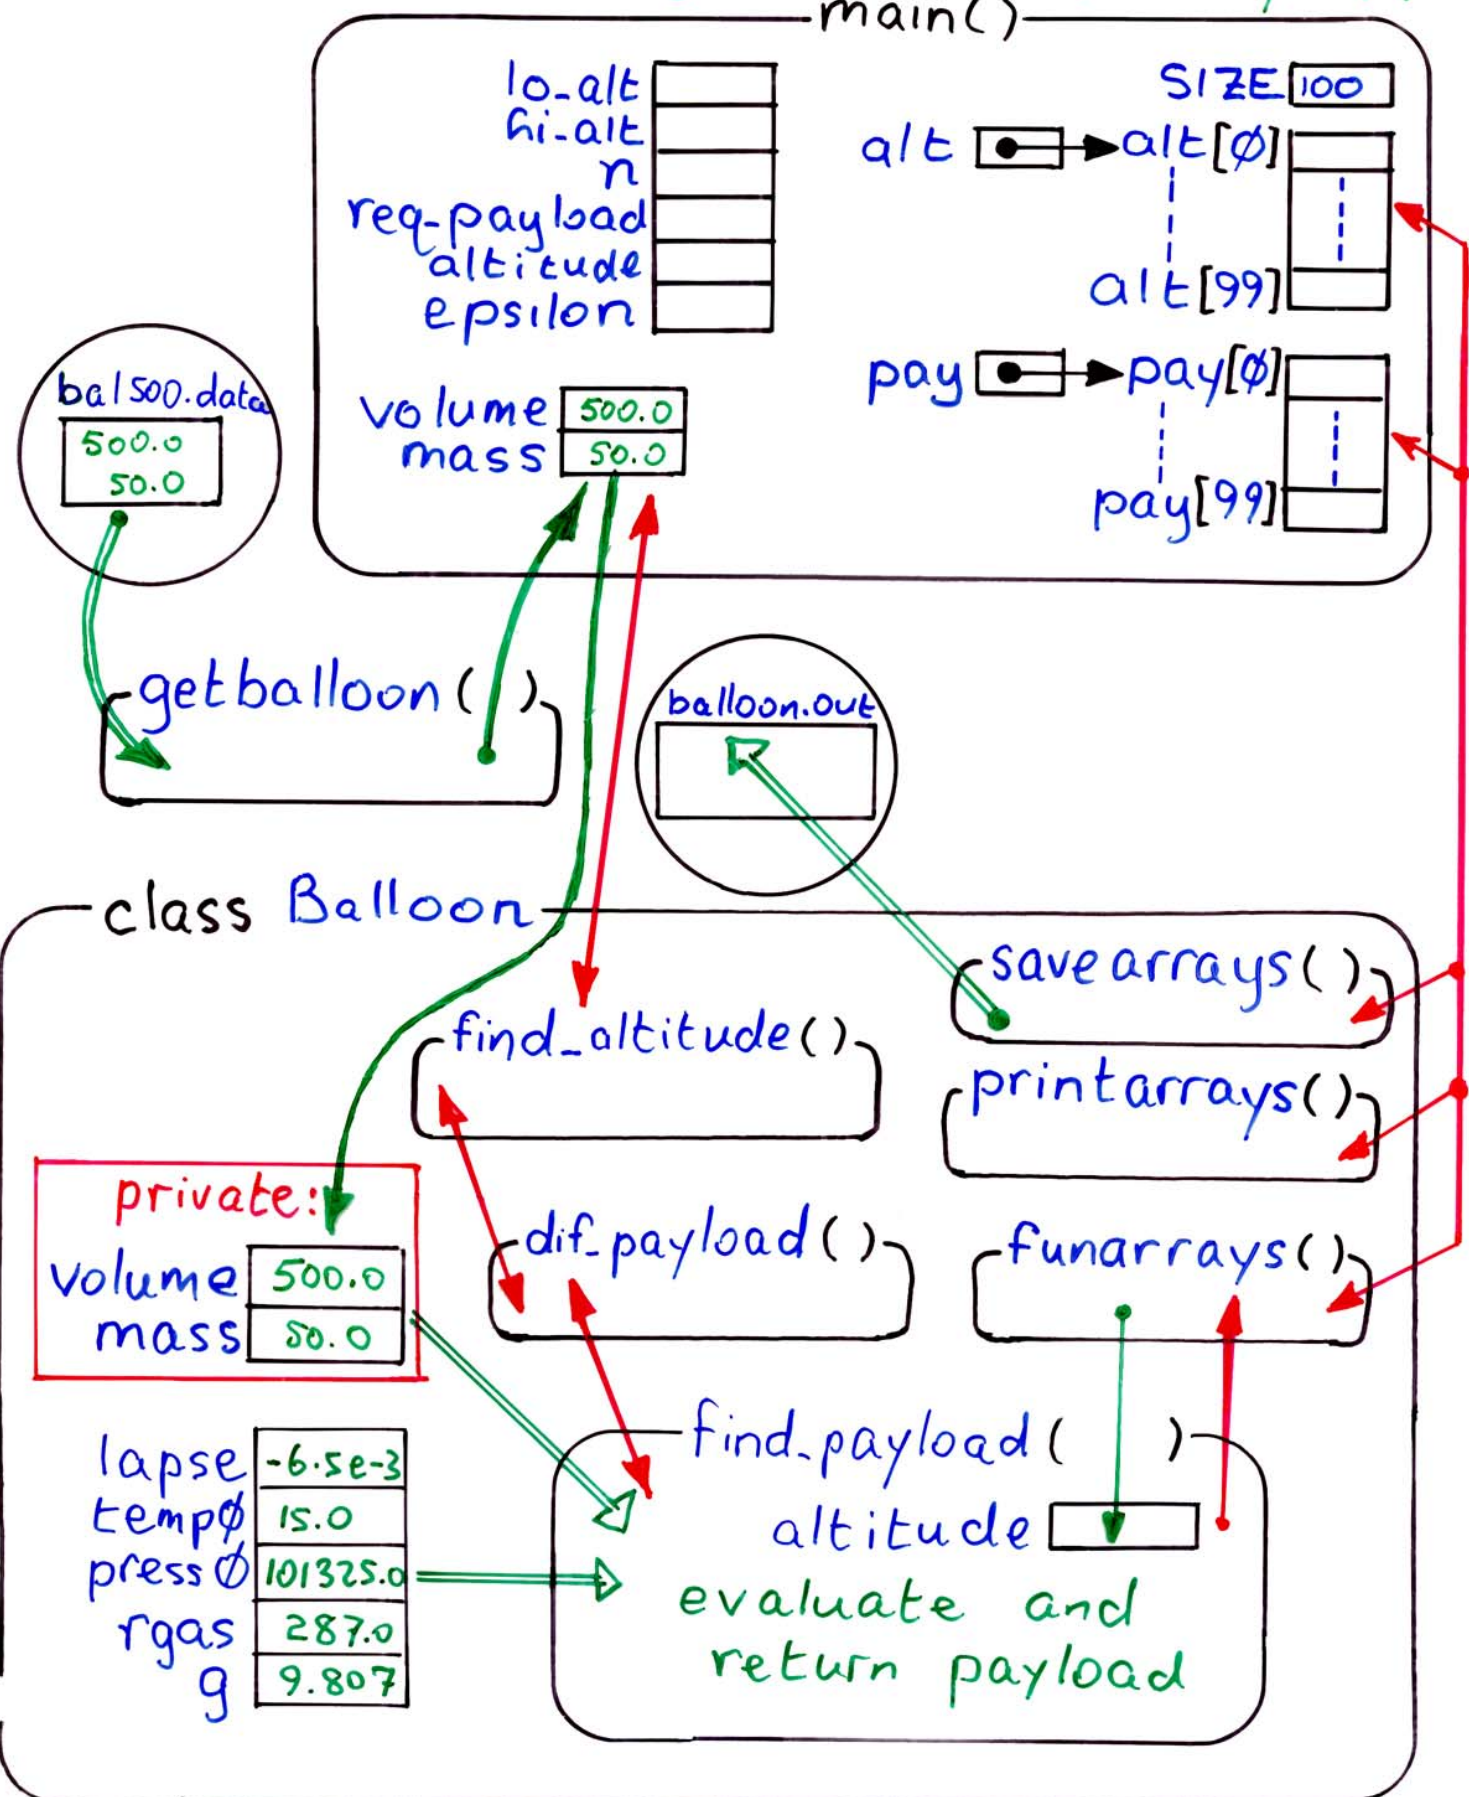 main()
lo_alt
hi_alt
n
req_payload
altitude
epsilon
SIZE 100
alt alt[0]
alt[99]
pay pay[0]
pay[99]
volume 500.0
mass 50.0
bal500.data
500.0
50.0
getballoon( )
balloon.out
class Balloon
savearrays()
find_altitude()
printarrays()
private:
volume 500.0
mass 50.0
dif_payload()
funarrays()
lapse -6.5e-3
temp0 15.0
press0 101325.0
rgas 287.0
g 9.807
find_payload( )
altitude
evaluate and
return payload